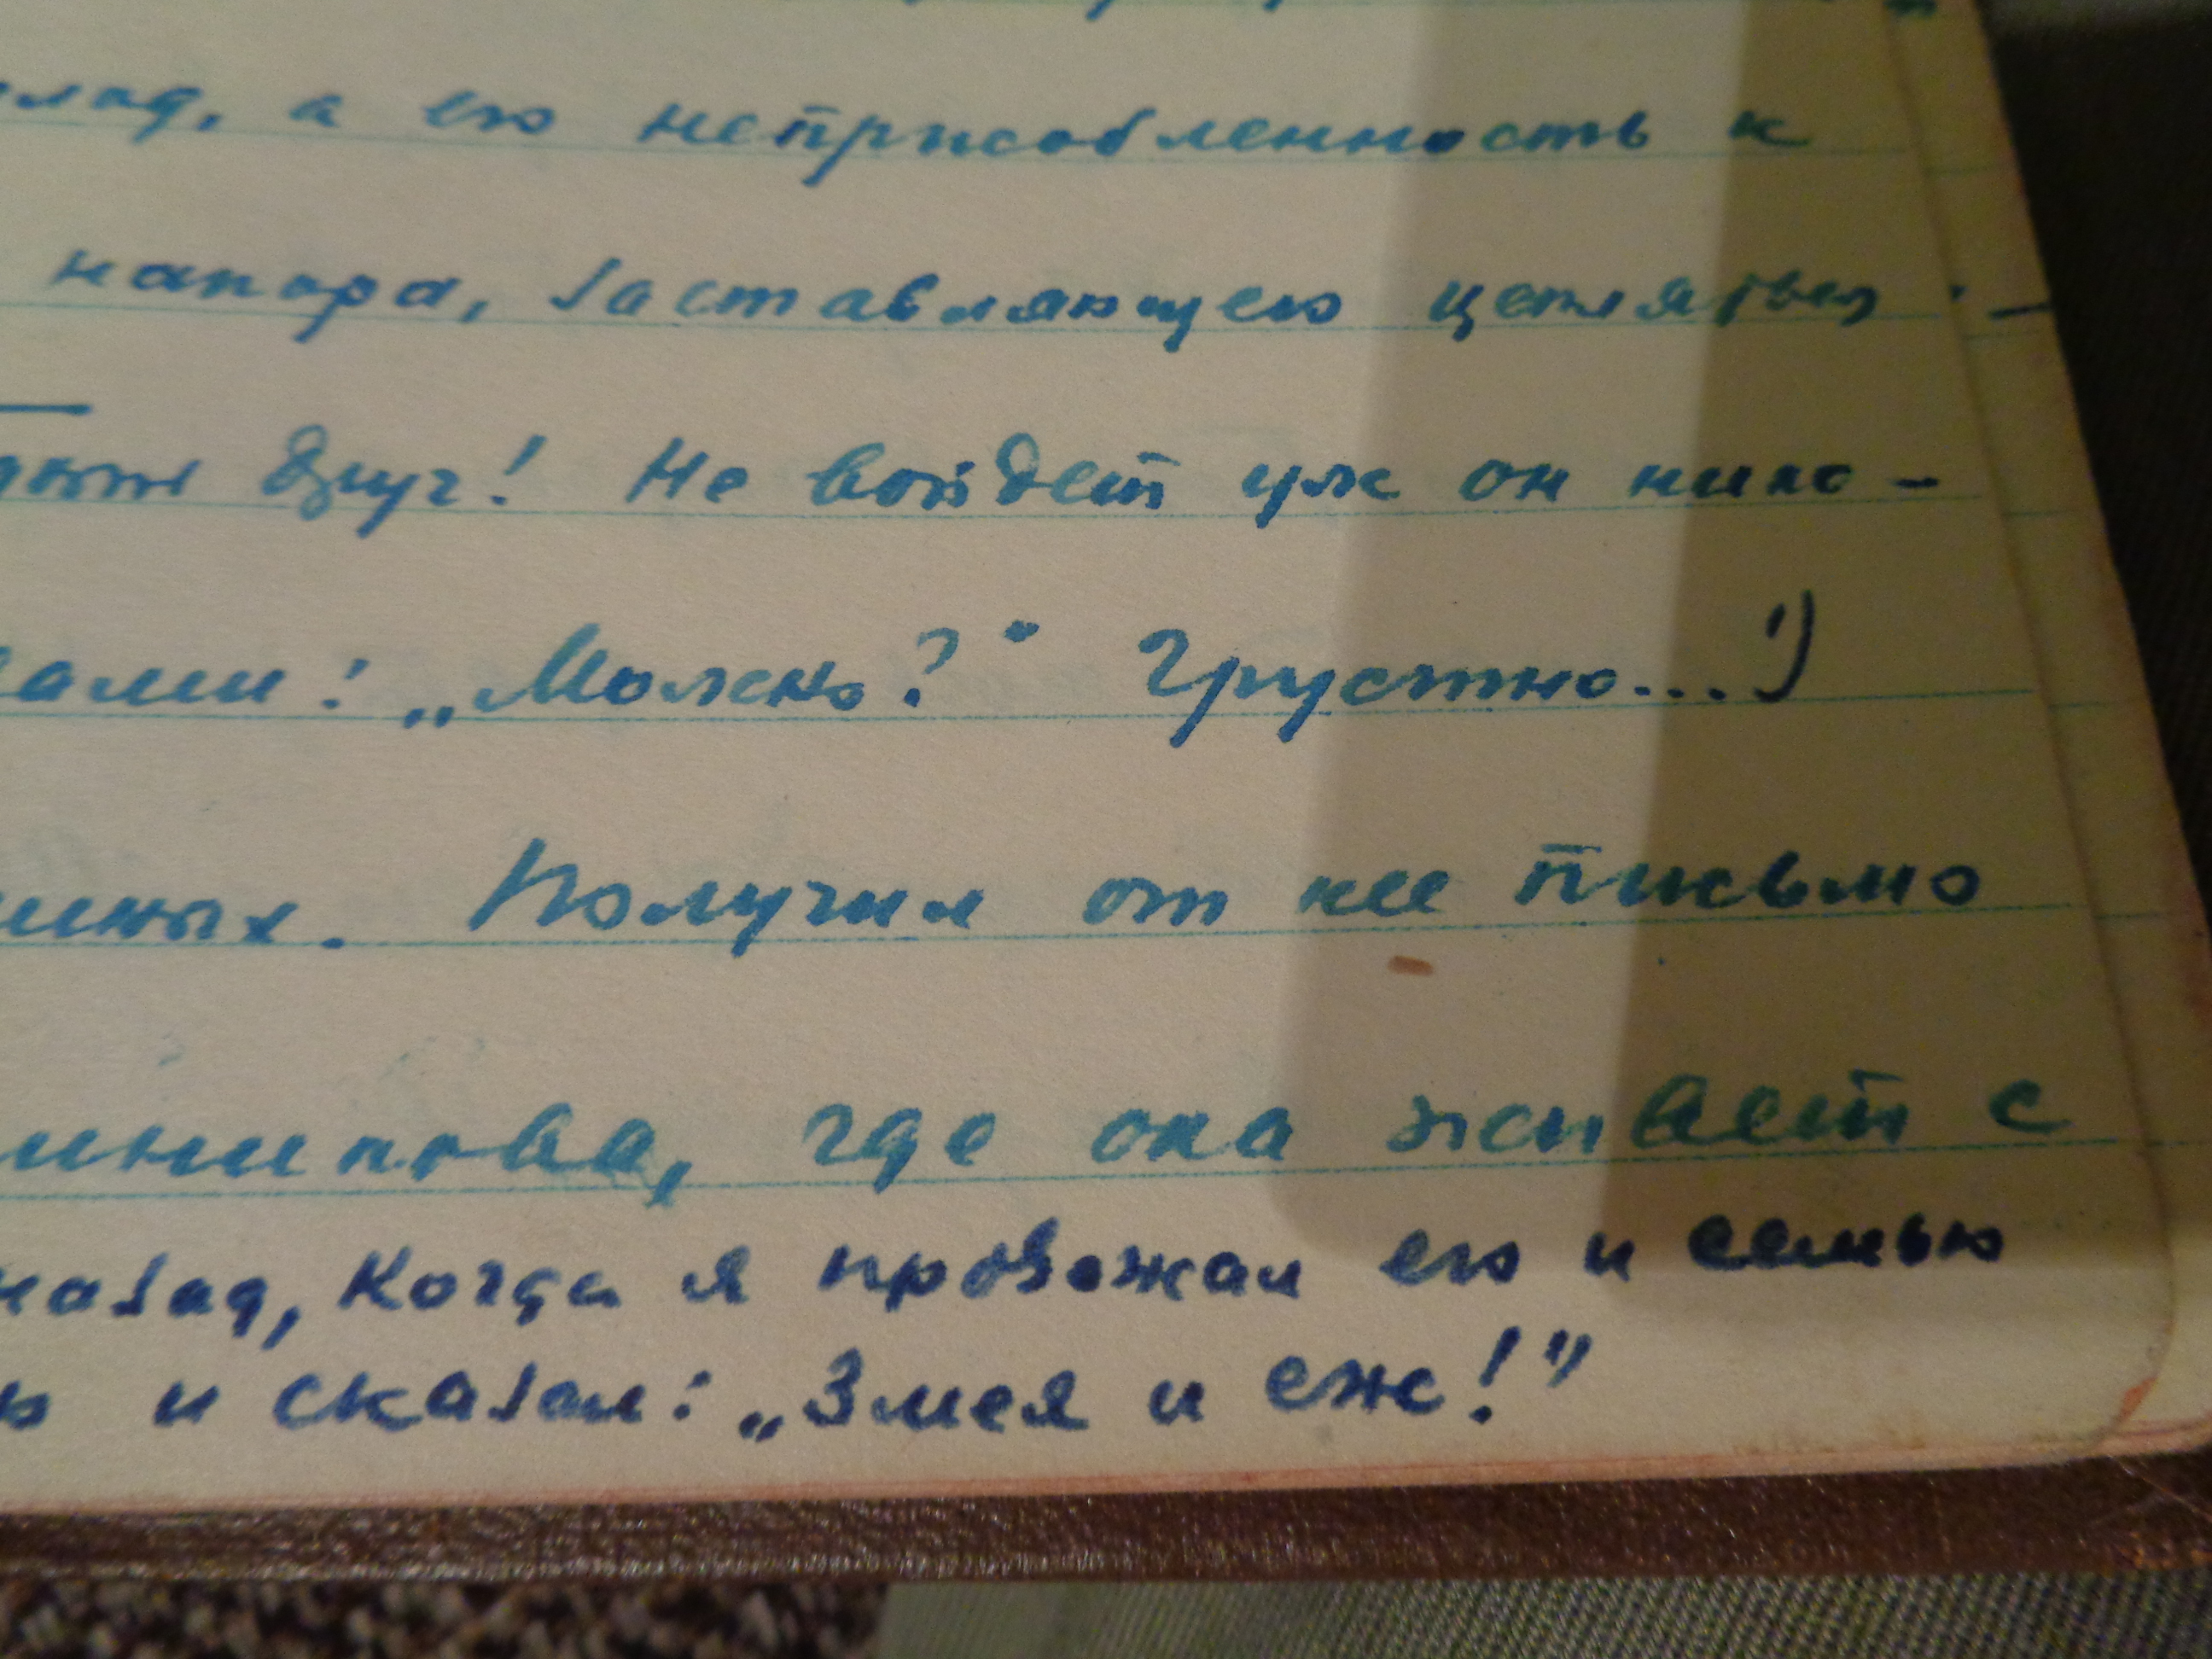 а его неприсобленность к
напора, заставляющего цепляться
друг! Не войдет уж он нико-
: „Можно?" Грустно...!)
Получил от нее письмо
где она живает с
назад, когда я провожал его и семью
и сказал: „Змея и еж!"